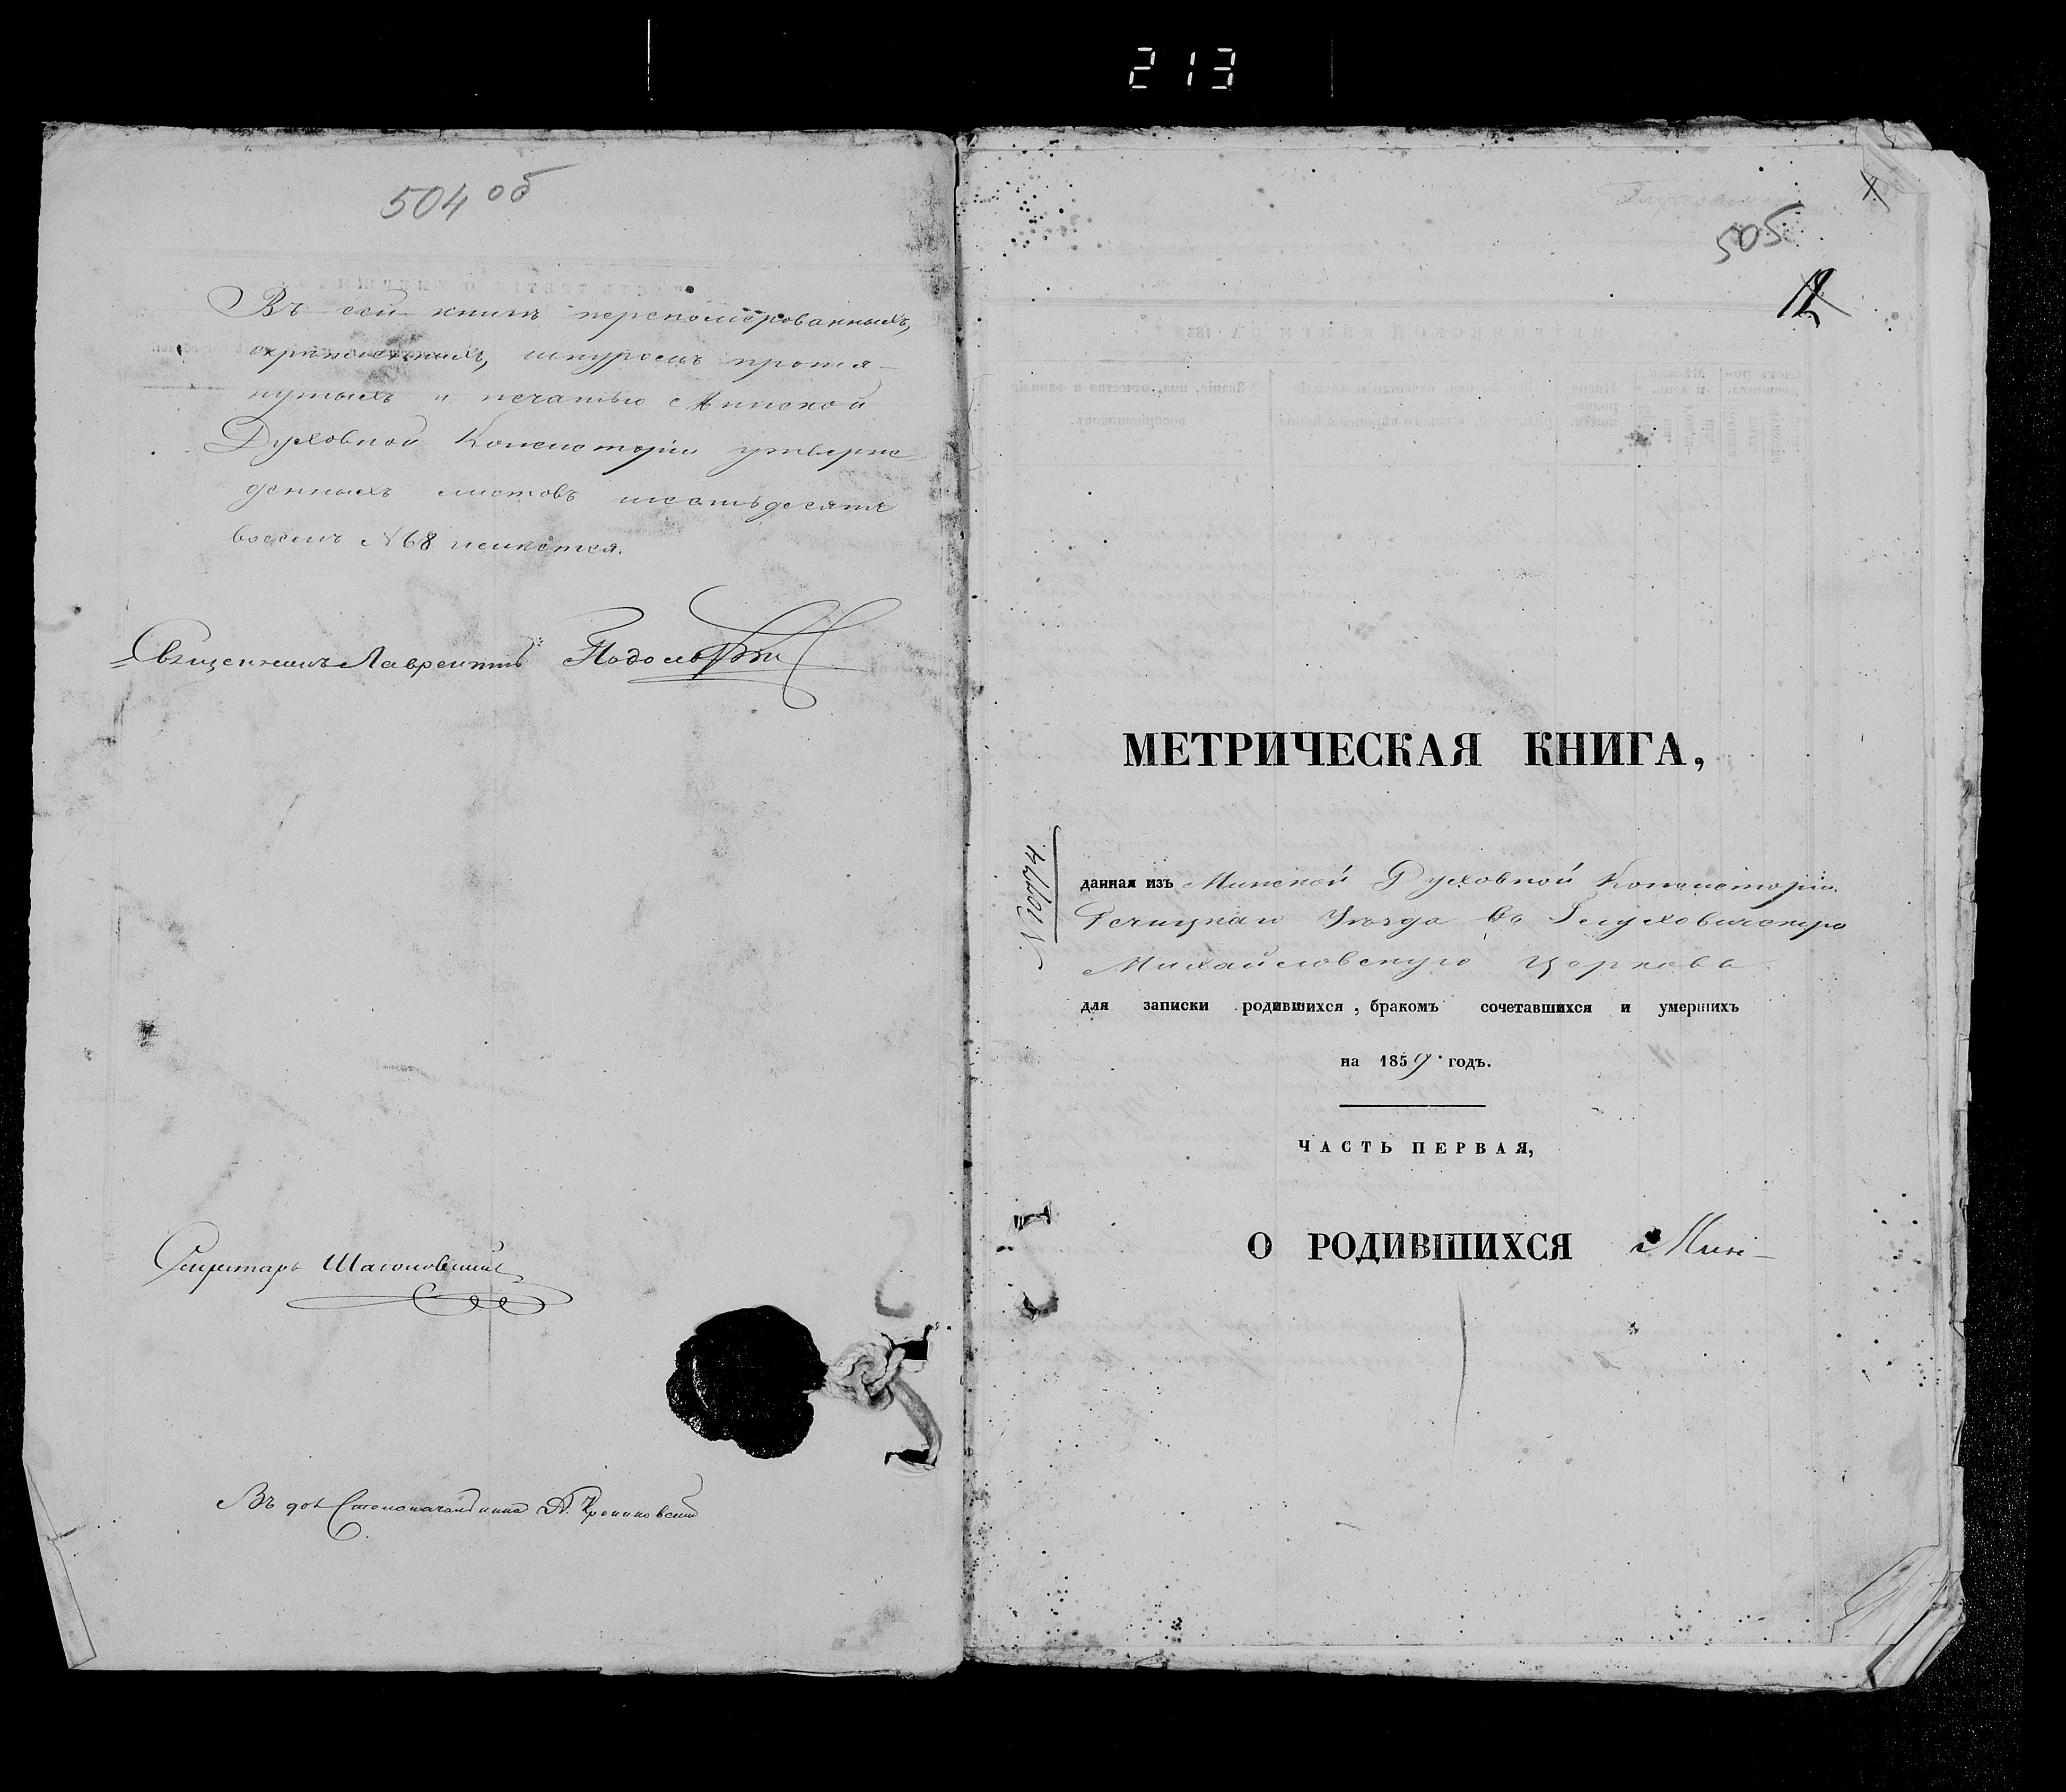 213
504 об
Въ сей книгѣ перепомерованныхъ,
скрѣпленныхъ, шнуромъ протя-
нутыхъ и печатью Минской
Духовной Консисторіи утверж
денныхъ листовъ шестьдесятъ
восемь № 68 имѣется.
Священникъ Лаврентій
Секретарь
Въ дол. Столоначальника А.
505
12
МЕТРИЧЕСКАЯ КНИГА,
N 10774.
данная изъ Минской Духовной Консисторіи
Речицкаго Уѣзда въ Глуховичскую
Михайловскую церковь
для записки родившихся, бракомъ сочетавшихся и умершихъ
на 1859 годъ.
ЧАСТЬ ПЕРВАЯ,
О РОДИВШИХСЯ